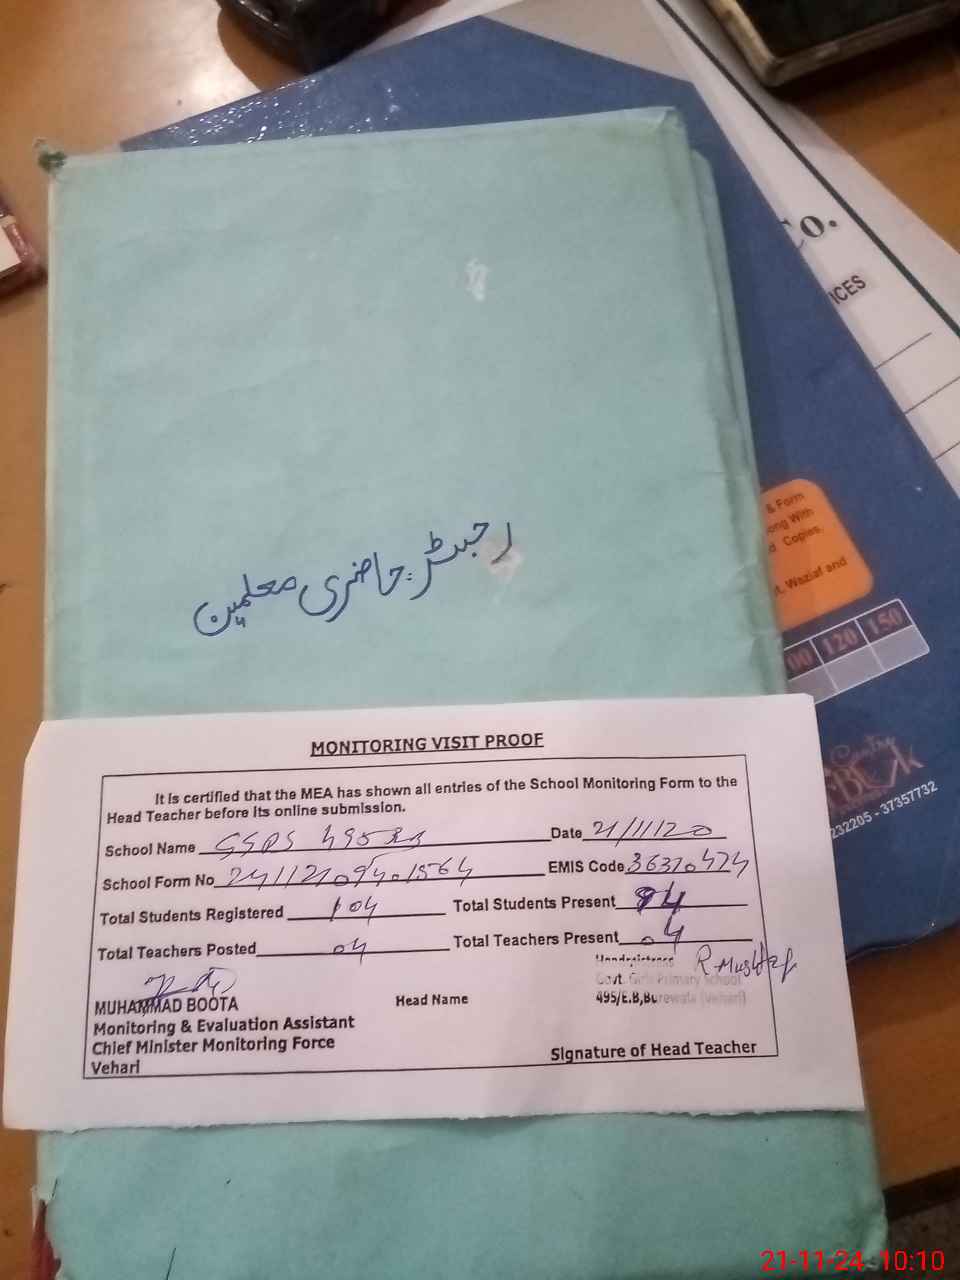 Co.
ICES
رجسٹر حاضری معلمین
& Form
ong With
d Copies,
t, Waziaf and
00 120 150
232205 - 37357732
MONITORING VISIT PROOF
It is certified that the MEA has shown all entries of the School Monitoring Form to the
Head Teacher before its online submission.
School Name GGPS 495 EB Date 21/11/20
School Form No EMIS Code 36320424
Total Students Registered 104 Total Students Present 94
Total Teachers Posted 04 Total Teachers Present 04
Headmistress R. Mushtaq
Govt. Girls Primary School
MUHAMMAD BOOTA Head Name 495/E.B,Burewala (Vehari)
Monitoring & Evaluation Assistant
Chief Minister Monitoring Force
Vehari Signature of Head Teacher
21-11-24 10:10